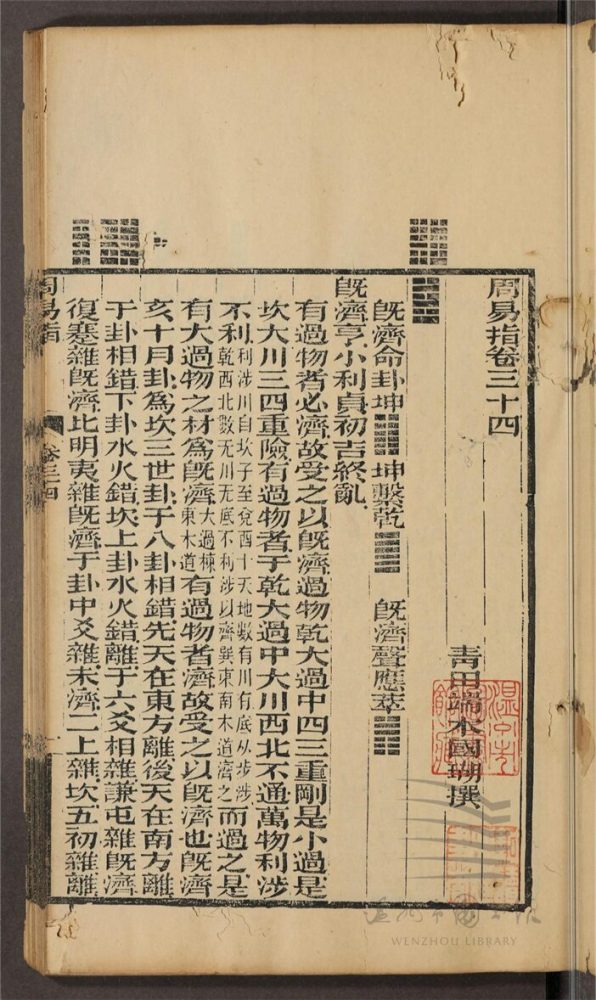 周易指卷三十四
青田端木國瑚撰
既濟命卦坤 坤繫乾 既濟聲應萃
既濟亨小利貞初吉終亂
有過物者必濟故受之以既濟過物乾大過中四三重剛是小過是
坎大川三四重險有過物者于乾大過中大川西北不通萬物利涉
不利利涉川自坎子至兌酉十天地數有川有底从步涉
乾西北數无川无底不利涉以濟巽東南木道濟之而過之是
有大過物之材為既濟大過棟東木道有過物者濟故受之以既濟也既濟
亥十月卦為坎三世卦于八卦相錯先天在東方離後天在南方離
于卦相錯下卦水火錯坎上卦水火錯離于六爻相雜謙屯雜既濟
復蹇雜既濟比明夷雜既濟于卦中爻雜未濟二上雜坎五初雜離
周易指 卷三十四 一
WENZHOU LIBRARY